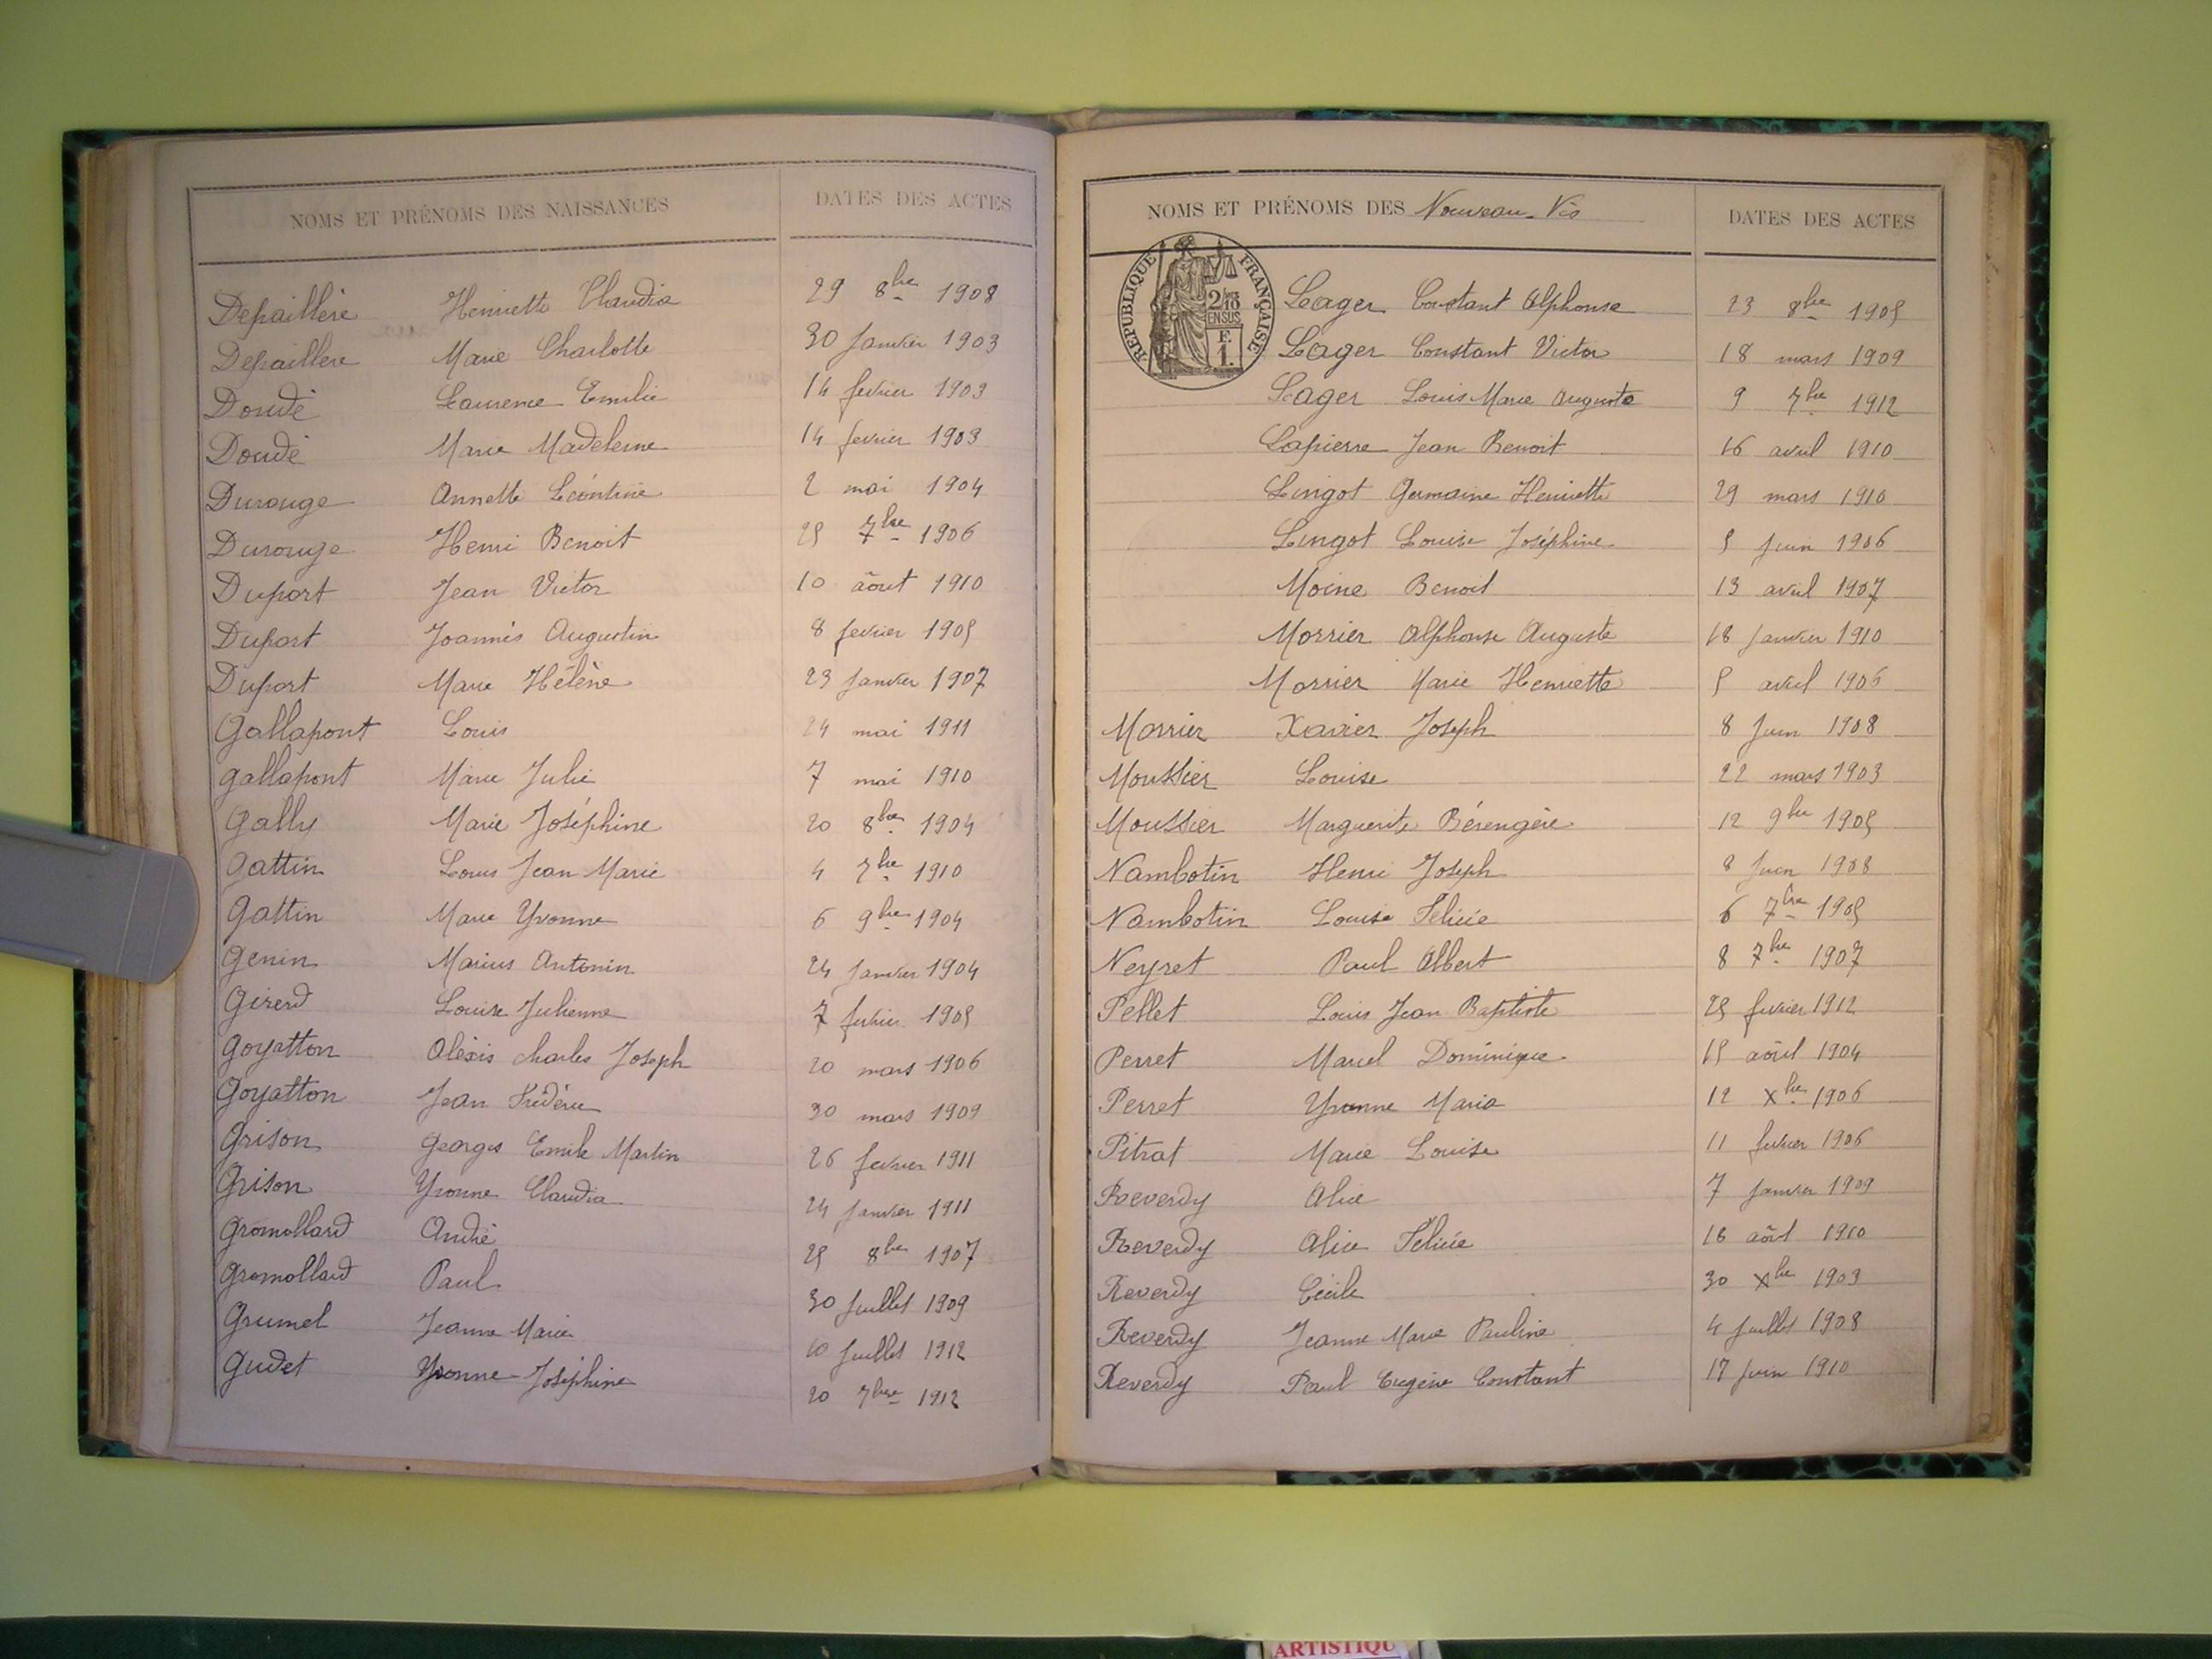 NOMS ET PRÉNOMS DES NAISSANCES DATES DES ACTES
Depaillère Henriette Claudia 29 8bre 1908
Depaillère Marie Charlotte 30 Janvier 1903
Doudè Laurence Emilie 14 fevrier 1903
Doudè Marie Madeleine 14 fevrier 1903
Durouge Annette Léontine 2 mai 1904
Durouge Henri Benoit 25 7bre 1906
Duport Jean Victor 10 âout 1910
Duport Joannès Augustin 8 fevrier 1905
Duport Marie Hélène 23 Janvier 1907
Gallapont Louis 24 mai 1911
Gallapont Marie Julie 7 mai 1910
Gally Marie Joséphine 20 8bre 1904
Gattin Louis Jean Marie 4 7bre 1910
Gattin Marie Yvonne 6 9bre 1904
Genin Marius Antonin 24 Janvier 1904
Girerd Louise Julienne 7 fevrier 1905
Goyatton Alèxis Charles Joseph 20 mars 1906
Goyatton Jean Frédéric 30 mars 1909
Grison Georges Emile Martin 26 fevrier 1911
Grison Yvonne Claudia 24 Janvier 1911
Gromollard Andrè 25 8bre 1907
Gromollard Paul 30 Juillet 1909
Grumel Jeanne Marie 10 Juillet 1912
Gudet Yvonne Joséphine 20 7bre 1912
NOMS ET PRÉNOMS DES Nouveau-Nés DATES DES ACTES
RÉPUBLIQUE FRANÇAISE
2/10 EN SUS
F. 1.
Lager Constant Alphonse 23 8bre 1905
Lager Constant Victor 18 mars 1909
Lager Louis Marie Auguste 9 7bre 1912
Lapierre Jean Benoit 16 avril 1910
Lingot Germaine Henriette 29 mars 1910
Lingot Louise Joséphine 5 Juin 1906
Moine Benoit 13 avril 1907
Morrier Alphonse Auguste 18 Janvier 1910
Morrier Marie Henriette 5 avril 1906
Morrier Xavier Joseph 8 Juin 1908
Moussier Louise 22 mars 1903
Moussier Marguerite Bérengère 12 9bre 1905
Nambotin Henri Joseph 8 Juin 1908
Nambotin Louise Félicie 6 7bre 1905
Neyret Paul Albert 8 7bre 1907
Pellet Louis Jean Baptiste 25 fevrier 1912
Perret Marcel Dominique 15 aôut 1904
Perret Yvonne Maria 12 Xbre 1906
Pitrat Marie Louise 11 fevrier 1906
Reverdy Alice 7 Janvier 1909
Reverdy Alice Félicie 16 aôut 1910
Reverdy Cécile 30 Xbre 1903
Reverdy Jeanne Marie Pauline 4 Juillet 1908
Reverdy Paul Eugène Constant 17 Juin 1910
ARTISTIQU